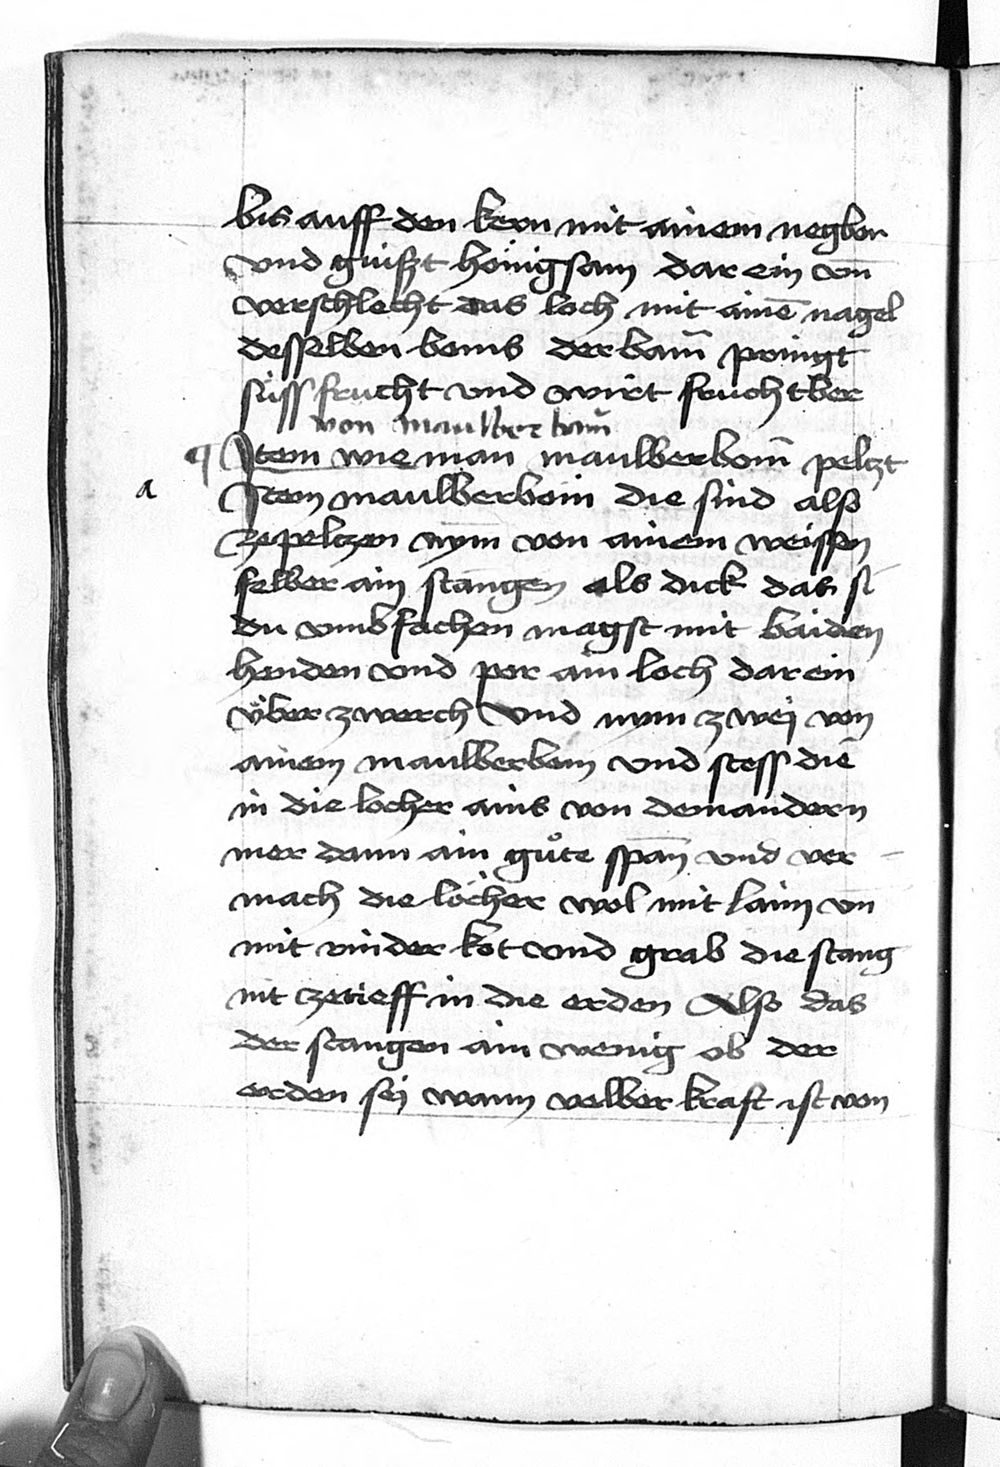 bis auff den kern mit ainem negber
vnd guißt honigsam dar ein vm̄
verschlecht das loch mit ainē nagel
desselben boms der bam̄ pringt
süss frucht vnd wirt fruchtber
von maulber bam̄
¶ Item wie man maulberbom̄ pelczt
a Item maulberbom die sind also
ze pelczen nym von ainem weissen
felber ain stangen als dick das si
du vmbfachen magst mit baiden
henden vnd por ain loch dar ein
vber zwerch vnd nym zwej von
ainem maulberbom vnd stoss die
in die locher ains von dem andern
mer dann ain gůte span̄ vnd ver
mach die löcher wol mit laim vn̄
mit rinder kot vnd grab die stang
nit zetieff in die erden Also das
der stangen ain wenig ob der
erden sej wann velber kraft ist von